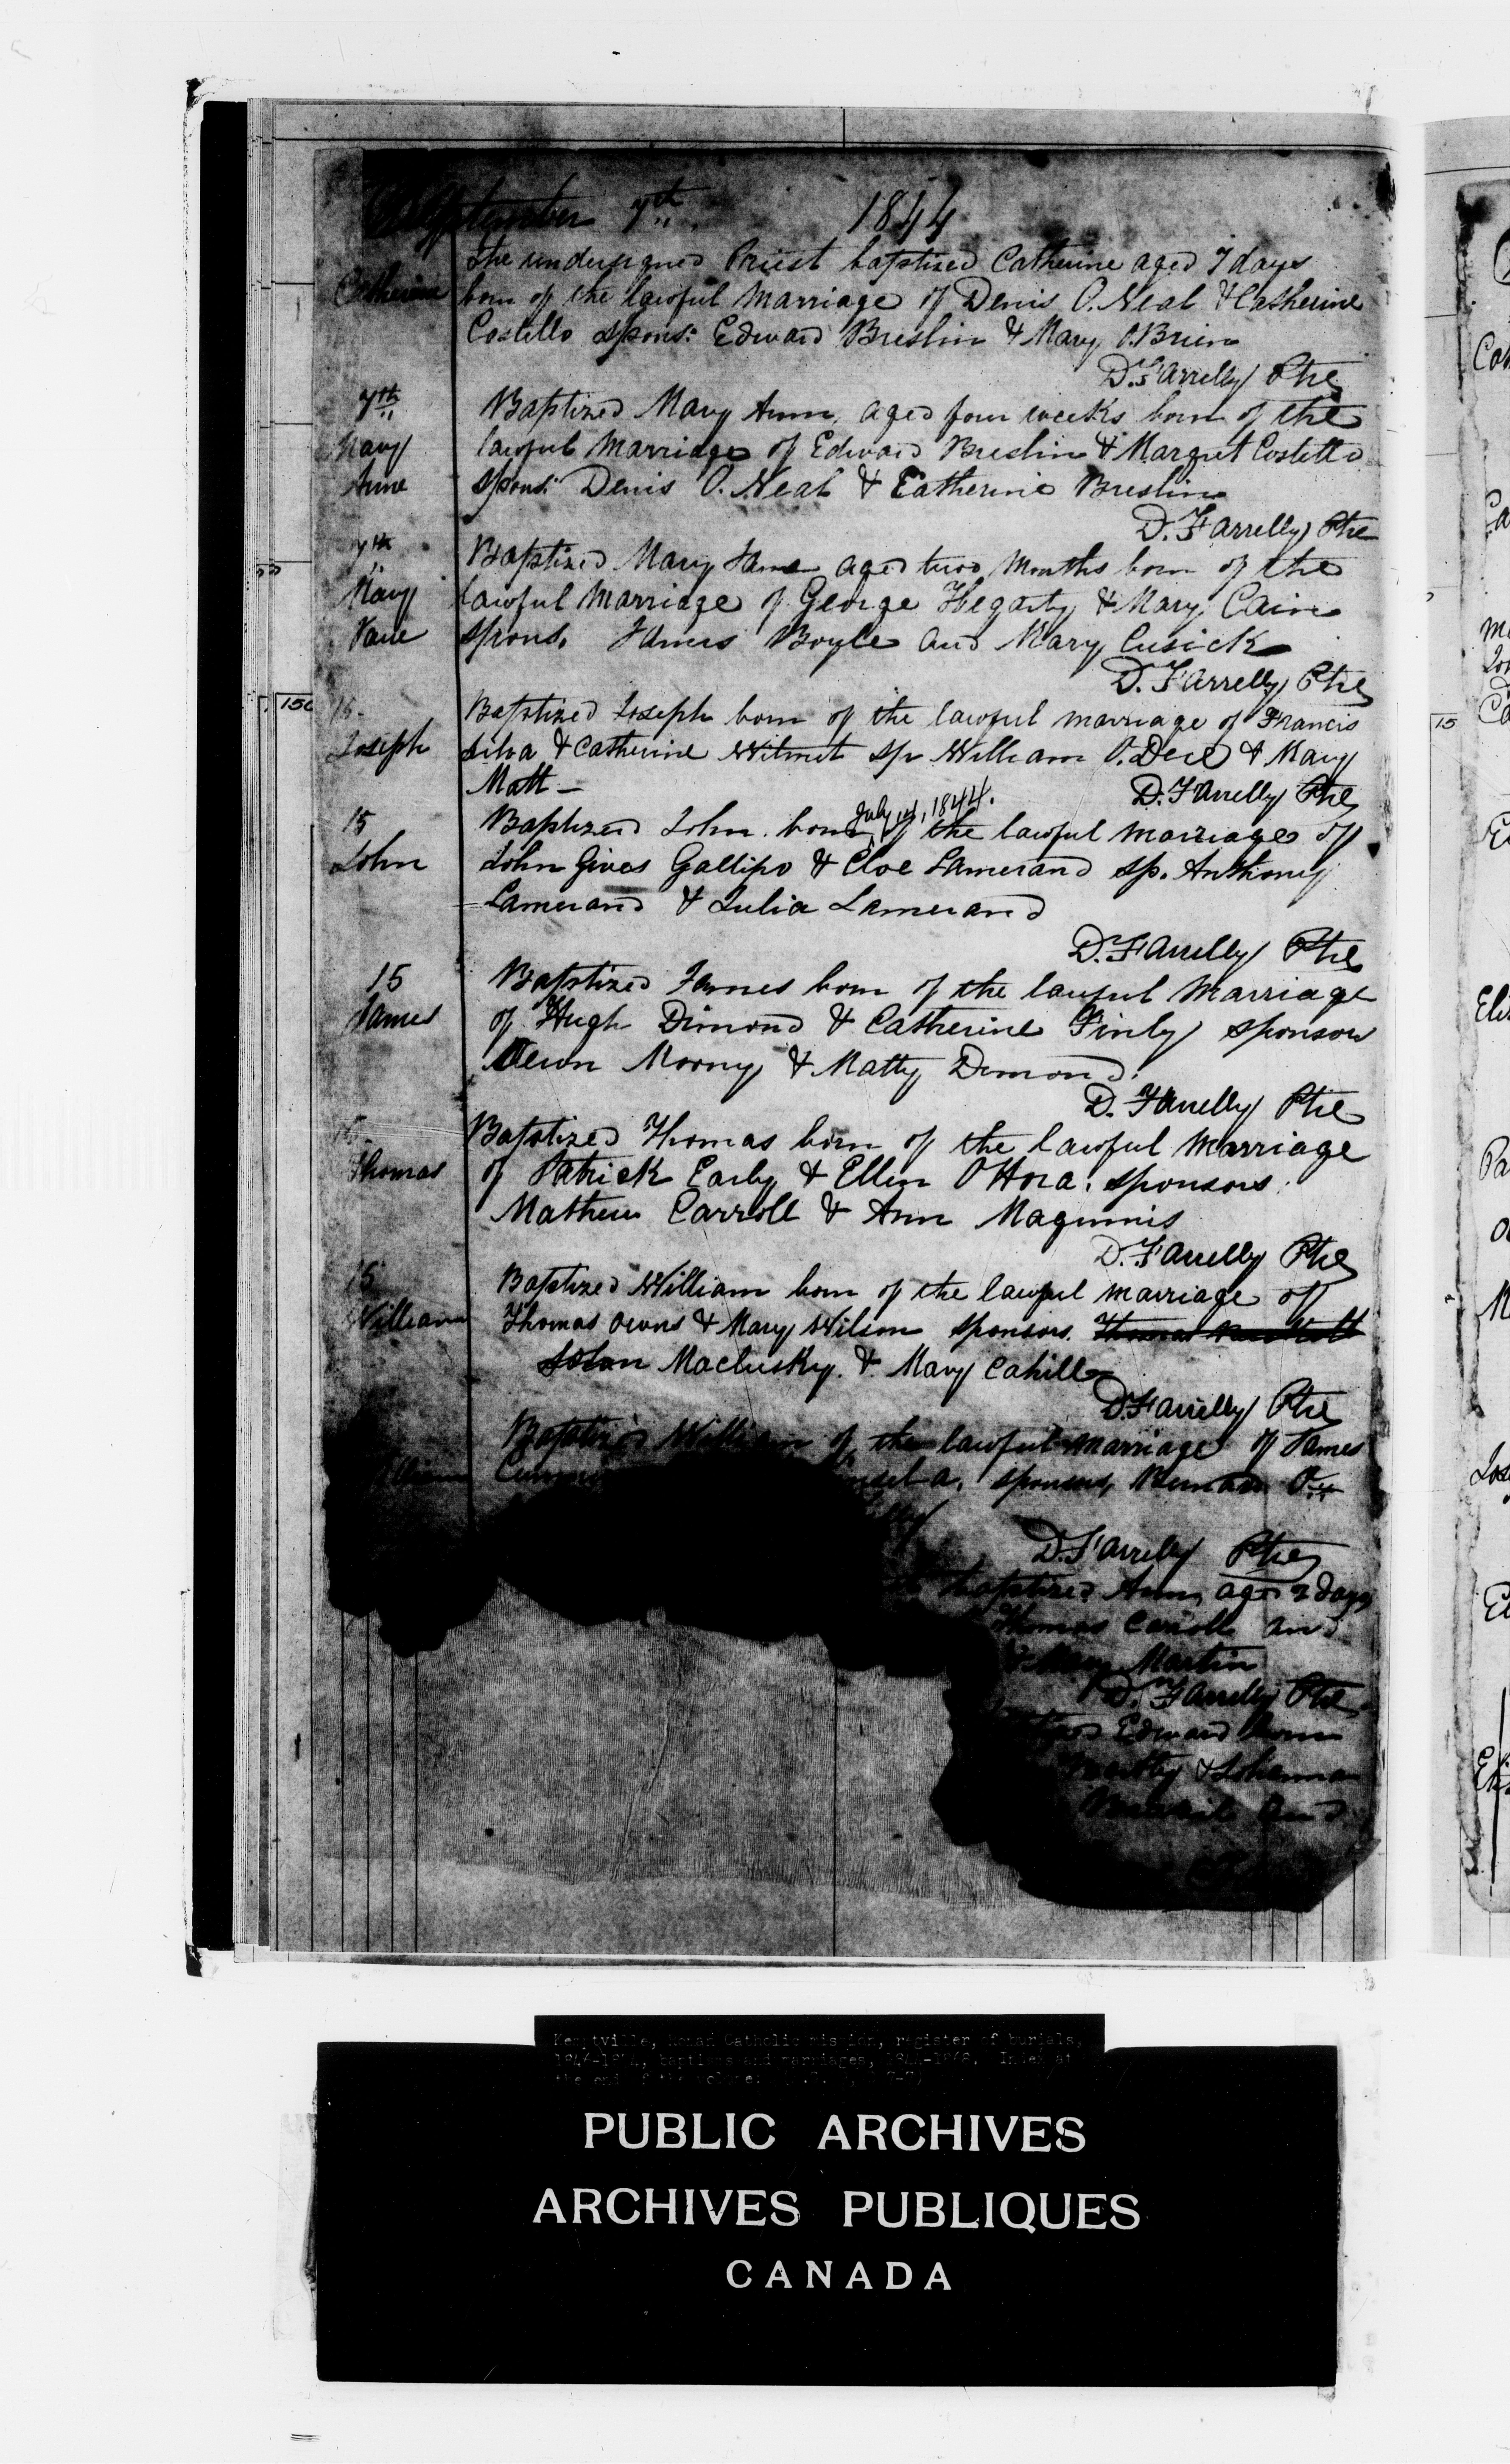 September 7th 1844
The undersigned Priest baptised Catherine aged 7 days
Catherine born of the lawful Marriage of Denis O.Neal & Catherine
Costello spons: Edward Breslin & Mary O.Brien
D. Farrelly Ptre
7th Baptized Mary Ann aged four weeks born of the
Mary lawful Marriage of Edward Breslin & Margret Costello
Anne spons: Denis O.Neal & Catherine Breslin
D. Farrelly Ptre
7th Baptized Mary Jane aged two Months born of the
Mary lawful Marriage of George Hegarty & Mary Cain
Jane spons. James Boyle and Mary Cusick
D. Farrelly Ptre
150
15 Baptized Joseph born of the lawful marriage of Francis
Joseph Silva & Catherine Wilmit sp William O. & Mary
Matt —
D. Farrelly Ptre
July 14, 1844.
15 Baptized John born of the lawful Marriage of
John John Gives Gallipo & Cloe Lamerand sp. Anthony
Lamerand & Julia Lamerand
D. Farrelly Ptre
15 Baptized James born of the lawful Marriage
James of Hugh Dimond & Catherine Finly sponsors
Moony & Matty Dimond.
D. Farrelly Ptre
15 Baptized Thomas born of the lawful Marriage
Thomas of Patrick Early & Ellen OHora. sponsors
Mathew Carroll & Ann Maginnis
D. Farrelly Ptre
15 Baptized William born of the lawful marriage of
William Thomas Owens & Mary Wilson sponsors. Thomas
John Maclusky. & Mary Cahill
D. Farrelly Ptre
Baptized William of the lawful marriage of James
sponsors, Bernard O
D. Farrelly Ptre
baptized Ann, aged 2 days
Thomas Carroll and
& Mary Martin
D. Farrelly Ptre
Edward born
& Johanna
and
15
Kemptville, Roman Catholic mission, register of burials,
baptisms and marriages, Index at
the end of the volume:
PUBLIC ARCHIVES
ARCHIVES PUBLIQUES
CANADA